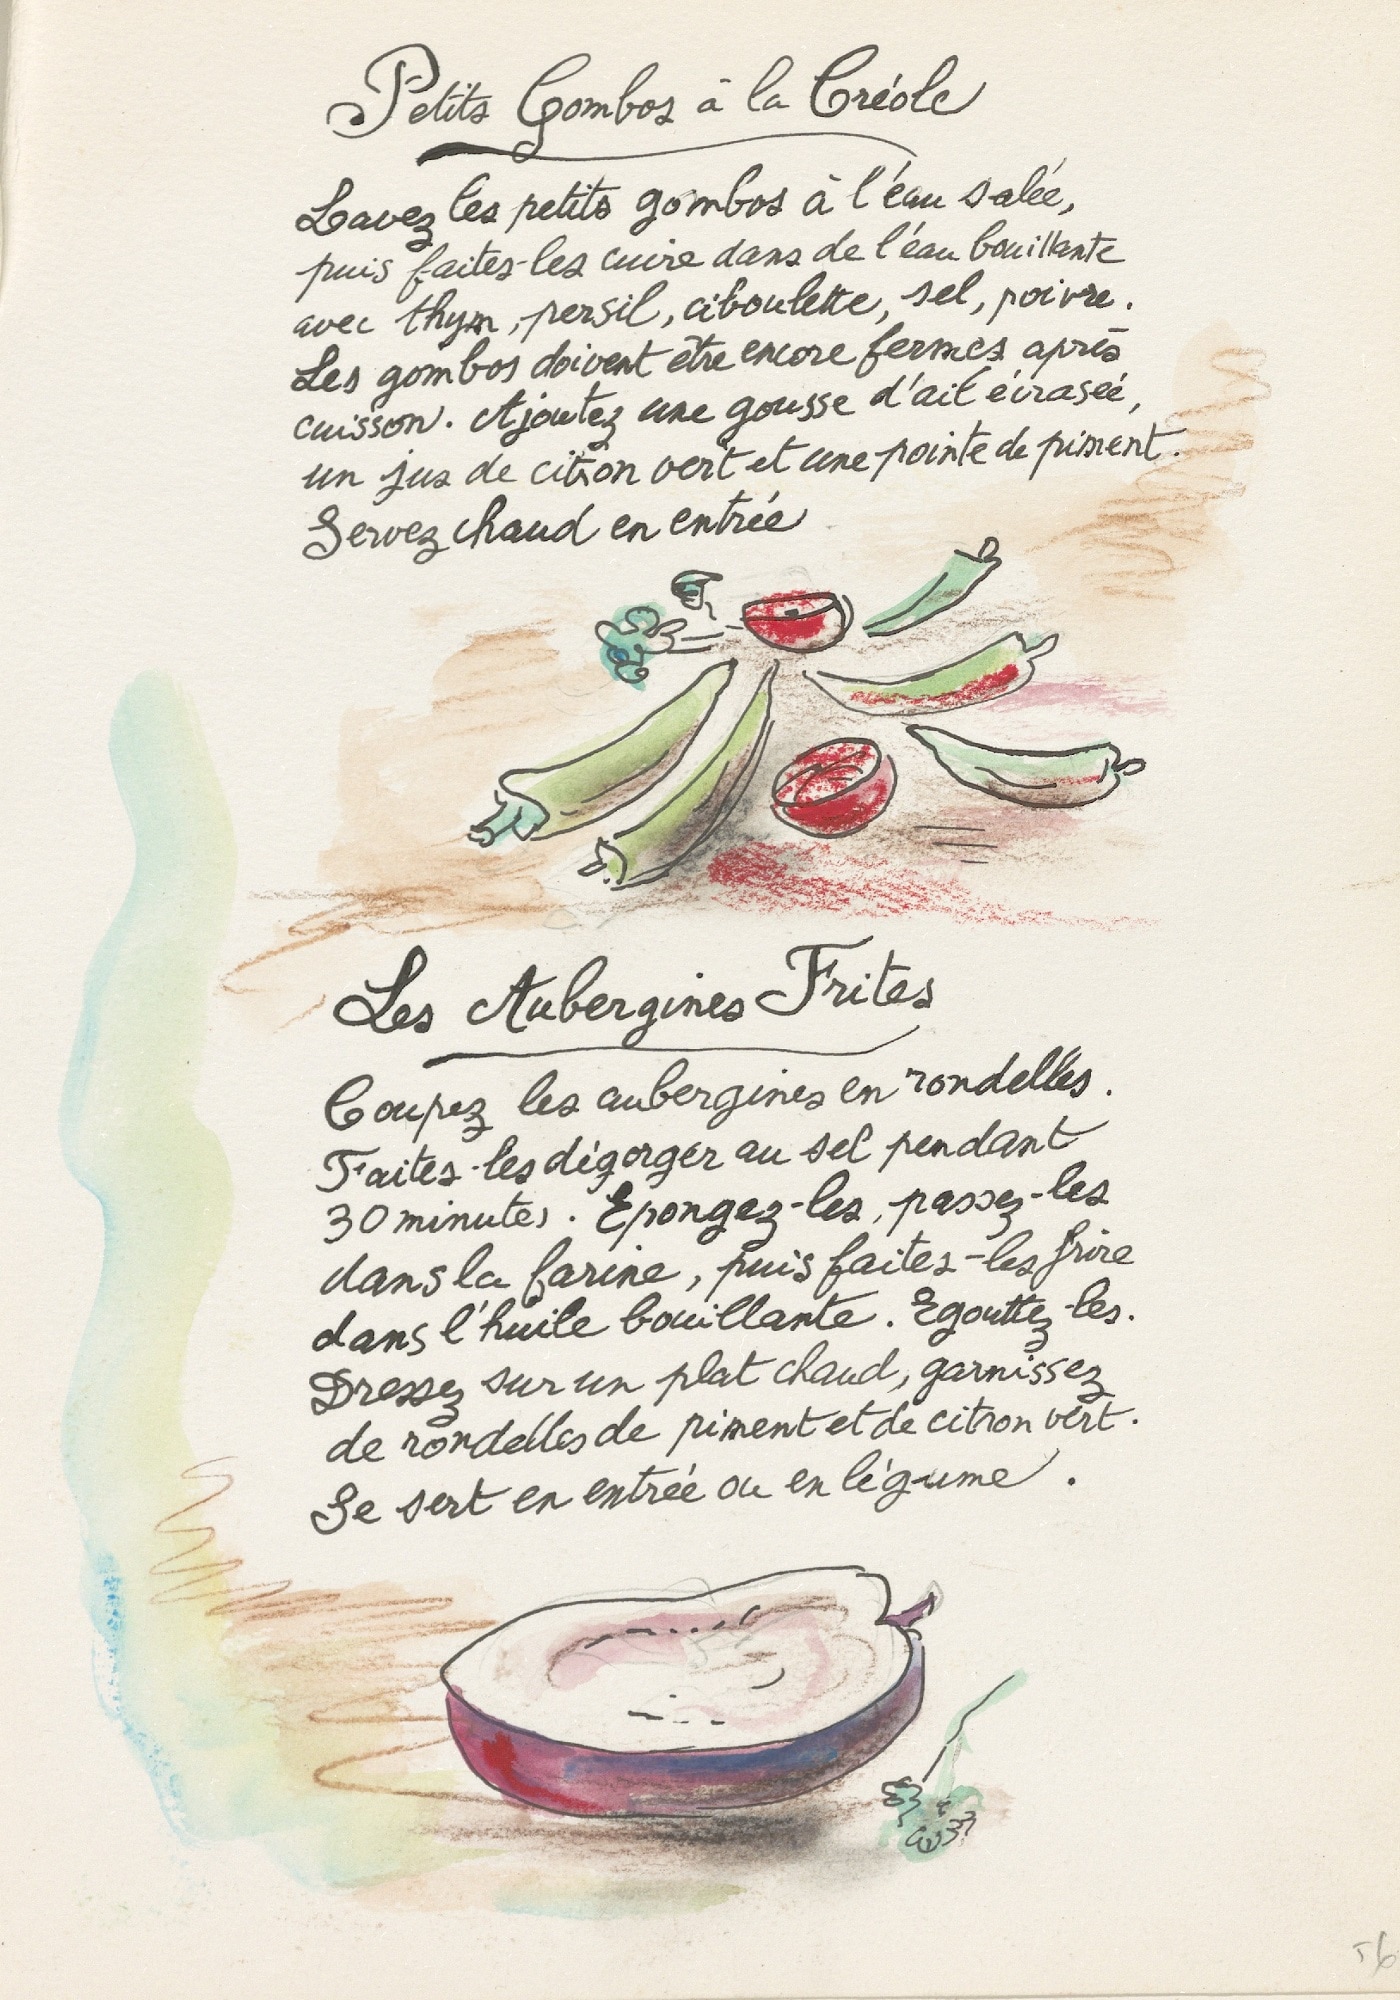 Petits Gombos à la Créole
Lavez les petits gombos à l'éau salée,
puis faites-les cuire dans de l'éau bouillante
avec thym, persil, ciboulette, sel, poivre.
Les gombos doivent être encore fermes après
cuisson. Ajoutez une gousse d'ail écraseé,
un jus de citron vert et une pointe de piment.
Servez chaud en entrée
Les Aubergines Frites
Coupez les aubergines en rondelles.
Faites-les dégorger au sel pendant
30 minutes. Epongez-les, passez-les
dans la farine, puis faites-les frire
dans l'huile bouillante. Egouttez-les.
Dressez sur un plat chaud, garnissez
de rondelles de piment et de citron vert.
Se sert en entrée ou en légume.
56